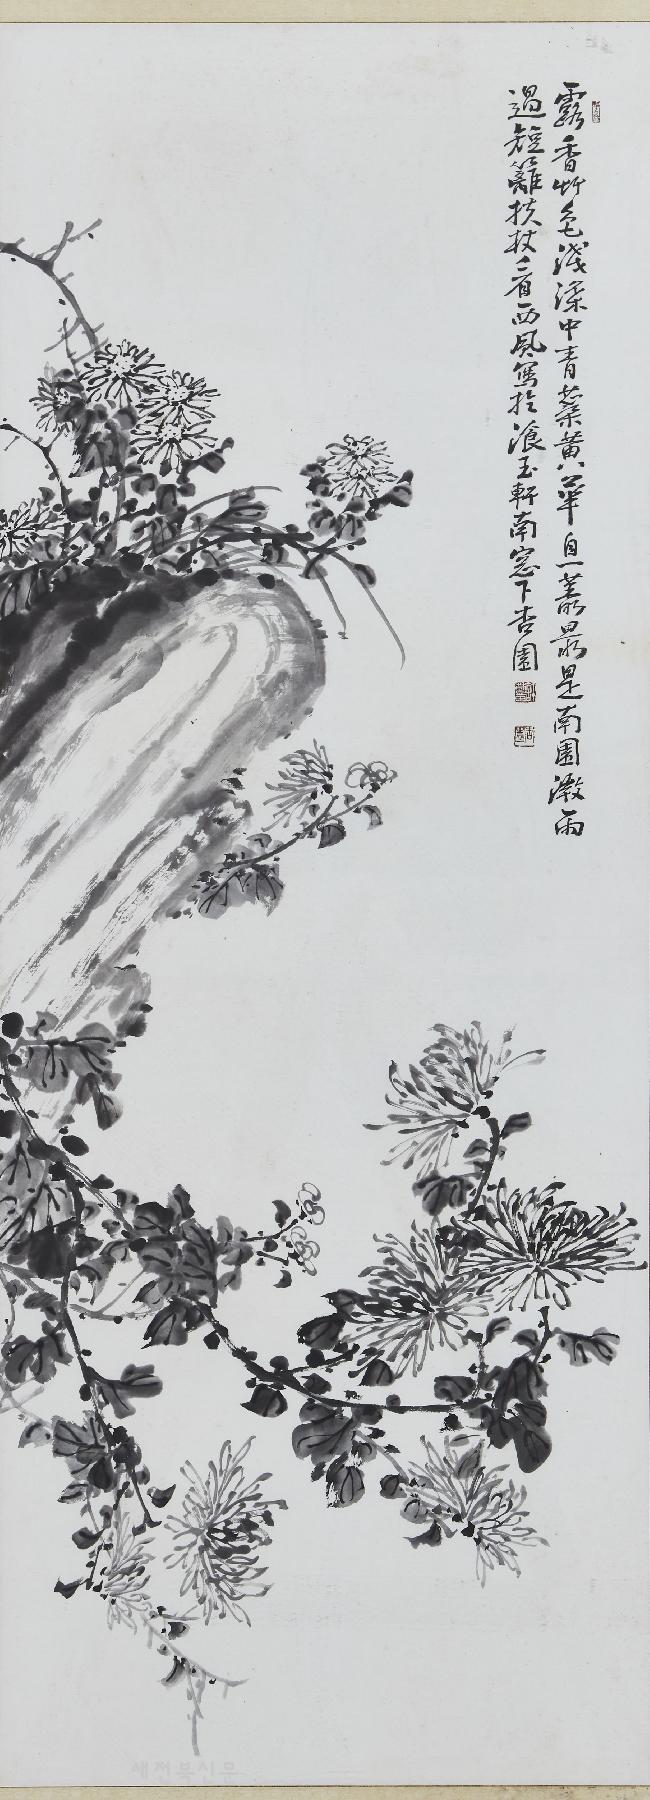 露香竹色淺深中青蘂黃華自一叢最是南園微雨
過短籬扶杖看西風寫於飡玉軒南窓下杏園
새전북신문